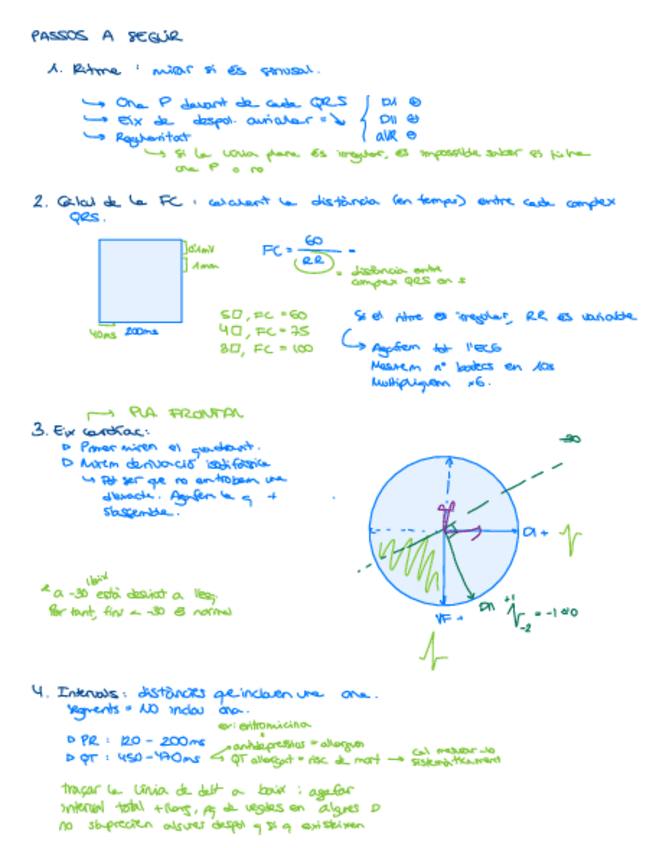 PASSOS A SEGUIR
1. Ritme : mirar si és sinusal.
→ Ona P davant de cada QRS
→ Eix de despol. auricular = ↘
→ Regularitat
DI ⊕
DII ⊕
aVR ⊖
→ Si la línia plana és irregular, és impossible saber si hi ha
ona P o no
2. Càlcul de la FC : calculant la distància (en temps) entre cada complex
QRS.
0,1mV
1mm
40ms 200ms
FC = 60 / RR =
= distància entre
complex QRS en s
5□, FC = 60
4□, FC = 75
3□, FC = 100
Si el ritme és irregular, RR és variable
→ Agafem tot l'ECG
Mesurem nº batecs en 10s
Multipliquem x6.
→ PLA FRONTAL
3. Eix cardíac:
▷ Primer mirem el quadrant.
▷ Mirem derivació isodifàsica
↳ Pot ser que no en trobem una
d'exacta. Agafem la q +
s'assembla.
-30
DI +
DII
+1
-2
= -1 ≈ 0
VF +
a -30 està desviat a l'esq.
Per tant, fins a -30 és normal
4. Intervals : distàncies que inclouen una ona.
Segments = NO inclou ona.
▷ PR : 120 - 200ms
▷ QT : 450 - 470ms
ex: eritromicina
antidepressius = allarguen
→ QT allargat = risc de mort → cal mesurar-lo
sistemàticament
traçar la línia de dalt a baix : agafar
interval total + llarg, pq de vegades en algunes D
no s'aprecien algunes despol q sí q existeixen